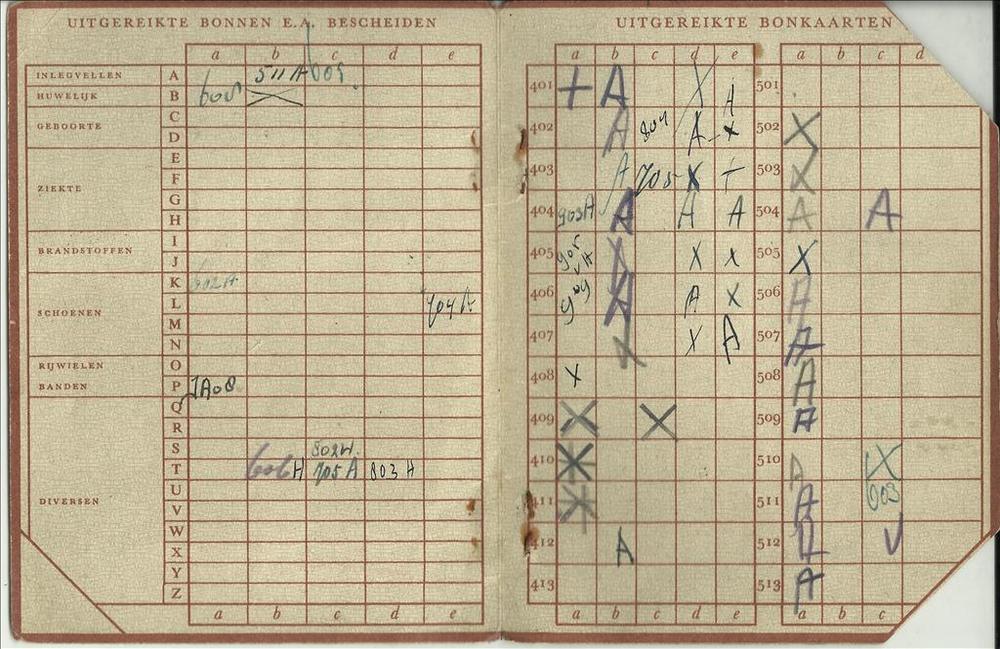 UITGEREIKTE BONNEN E.A. BESCHEIDEN
a b c d e
INLEGVELLEN A 511A 609
HUWELIJK B
C
GEBOORTE D
E
ZIEKTE F
G
H
I
BRANDSTOFFEN J
K 602A
SCHOENEN L 704A
M
N
RIJWIELEN O
BANDEN P
Q
R
S
T 606H 705A 803H
U
DIVERSEN V
W
X
Y
Z
a b c d e
UITGEREIKTE BONKAARTEN
a b c d e a b c d
401 + A X A 501
402 A A X 502 X
403 A 705 X + 503 X
404 903A A A A 504 A A
405 X X X 505 X
406 A A X 506 A
407 X X A 507 A
408 X 508 A
409 X X 509 A
410 X 510 A X
411 X 511 A 903
412 A 512 V
413 513 A
a b c d e a b c d